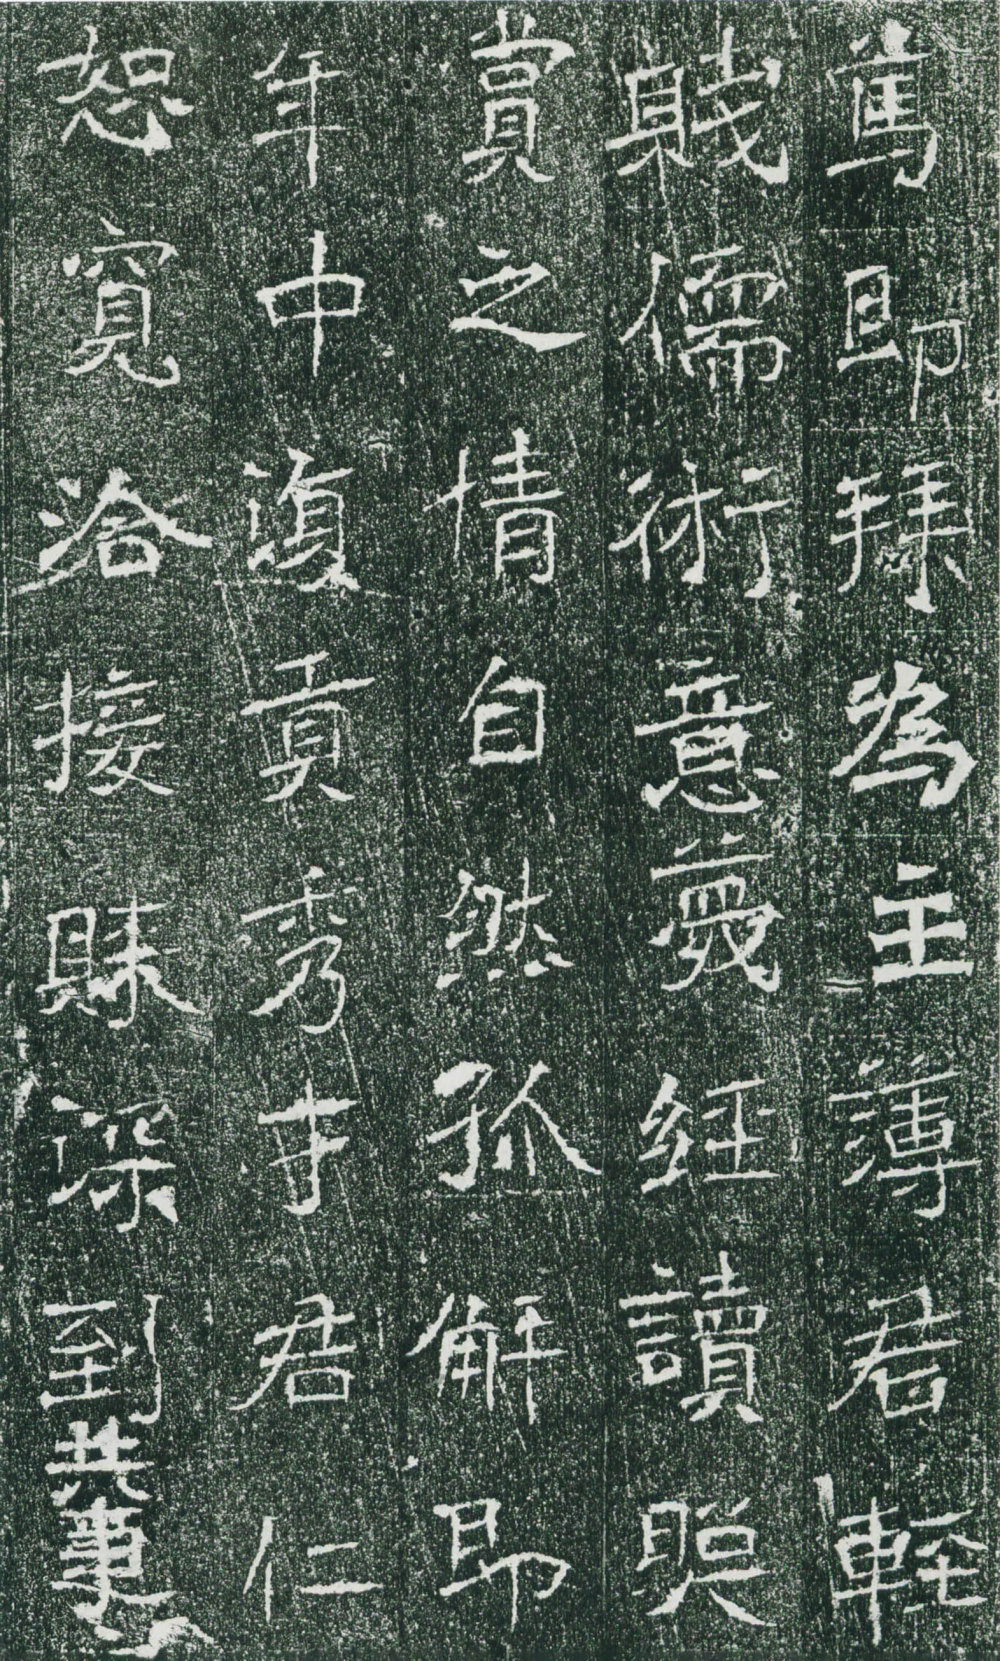 篤即拜為主薄君輕
賤儒術意蔑經讀照
賞之情自然孤解即
年中復貢秀才君仁
恕寬洽接深到共事之